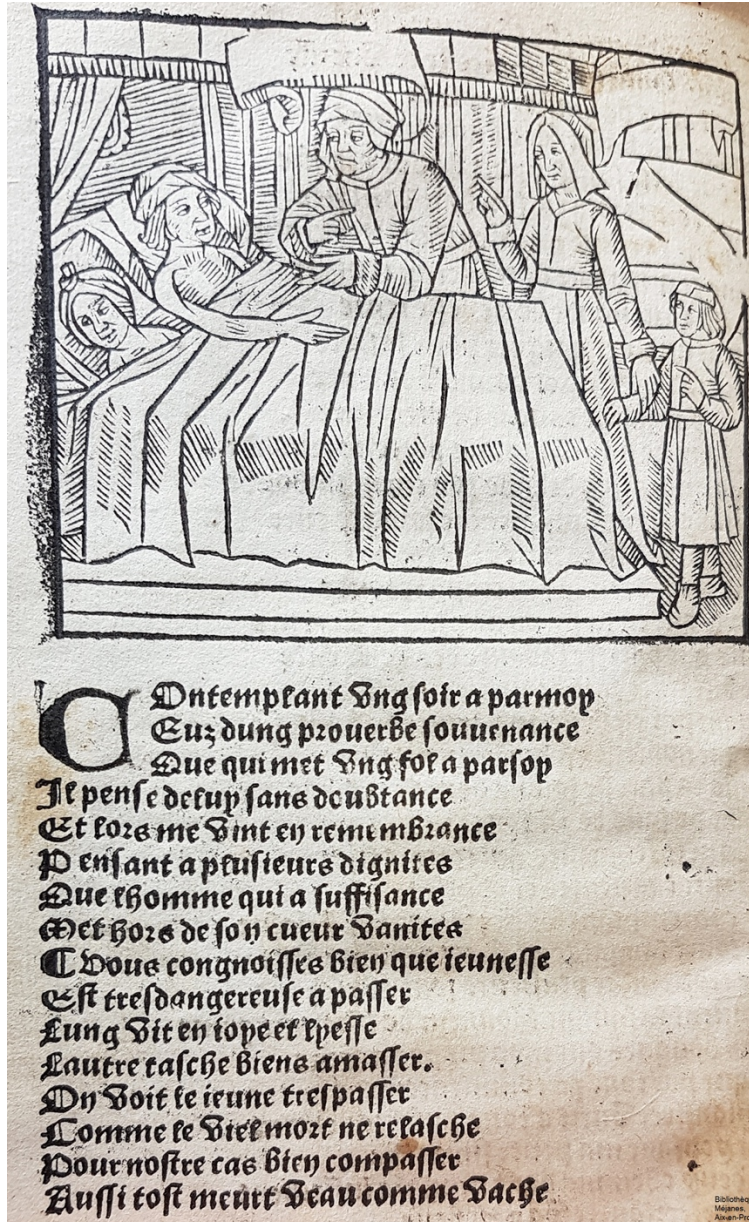 COntemplant vng soir a parmoy
Euz dung prouerbe souuenance
Que qui met vng fol a parsoy
Il pense deluy sans doubtance
Et lors me vint en remembrance
Pensant a plusieurs dignites
Que lhomme qui a suffisance
Met hors de son cueur vanites
¶ Vous congnoisses bien que ieunesse
Est tresdangereuse a passer
Lung vit en ioye et lyesse
Lautre tasche biens amasser.
On voit le ieune trespasser
Comme le viel mort ne relasche
Pour nostre cas bien compasser
Aussi tost meurt veau comme vache
Bibliothèq
Méjanes,
Aix-en-Pro